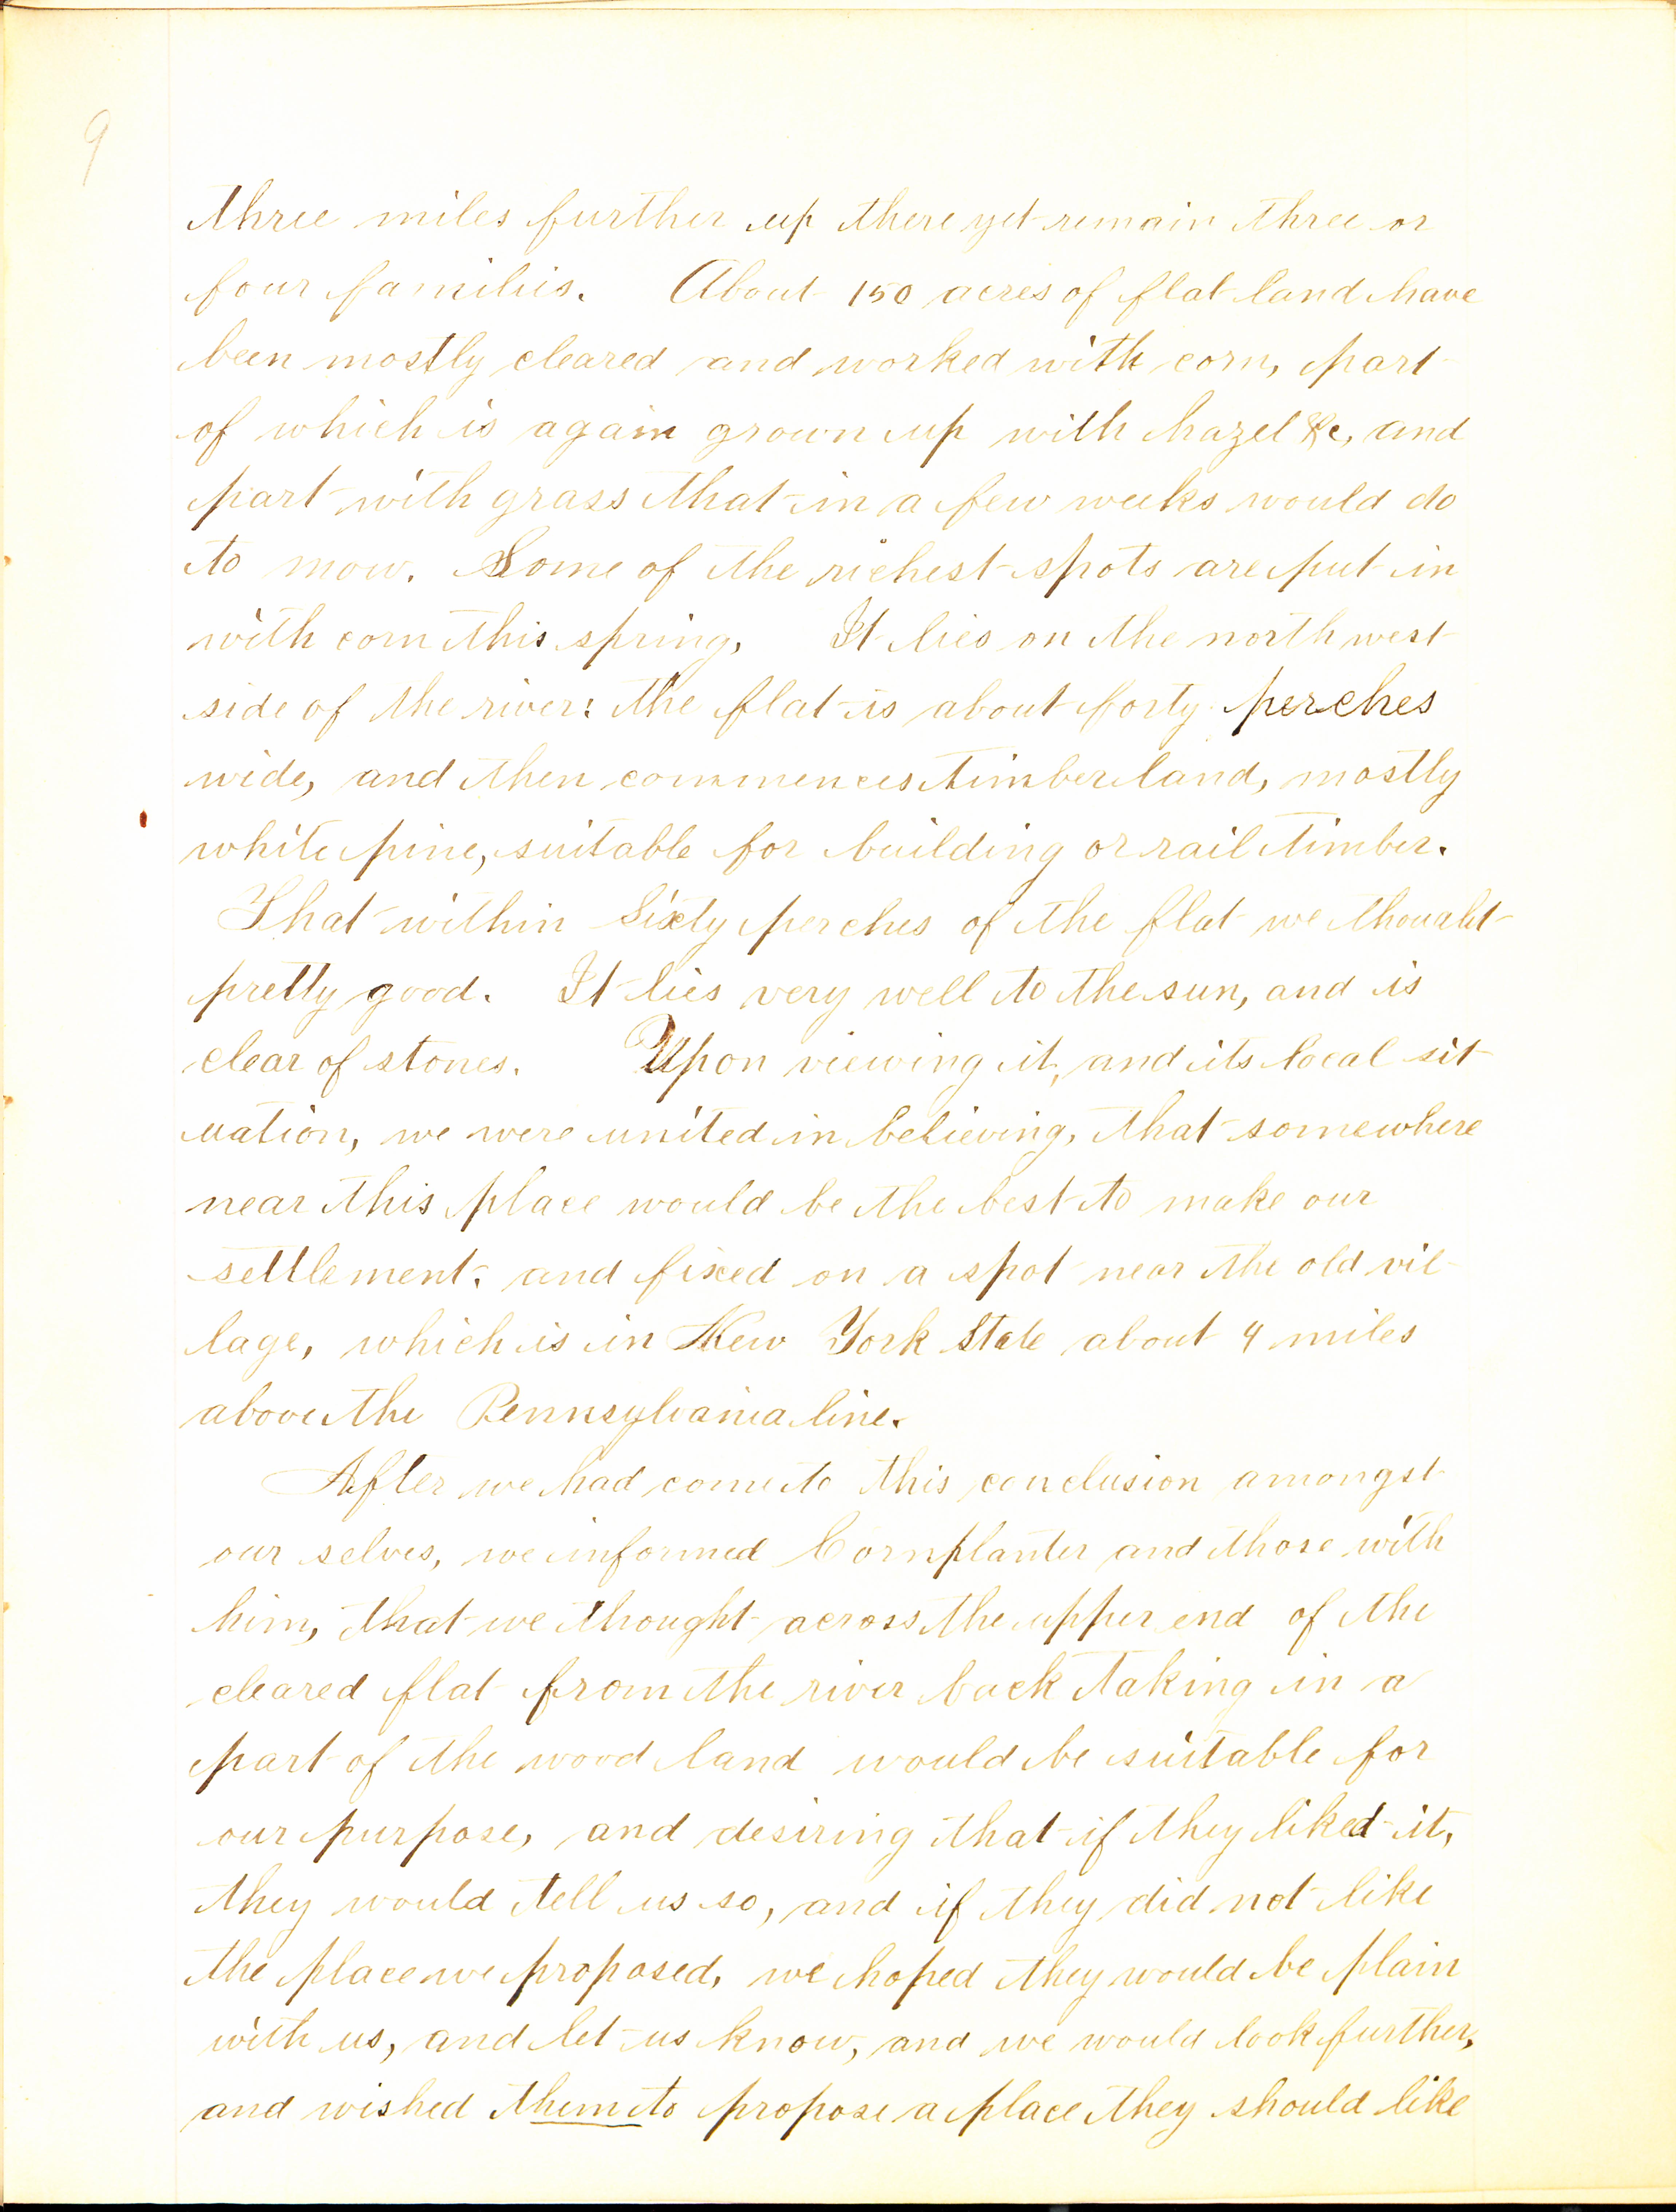 9
three miles further up there yet remain three or
four families. About 150 acres of flat land have
been mostly cleared and worked with corn, part
of which is again grown up with hazel &c, and
part with grass that in a few weeks would do
to mow. Some of the richest spots are put in
with corn this spring. It lies on the north west
side of the river: the flat is about forty perches
wide, and then commences timber land, mostly
white pine, suitable for building or rail timber.
That within Sixty perches of the flat we thought
pretty good. It lies very well to the sun, and is
clear of stones. Upon viewing it, and its local sit
uation, we were united in believing, that somewhere
near this place would be the best to make our
settlement: and fixed on a spot near the old vil-
lage, which is in New York State about 4 miles
above the Pennsylvania line.
After we had come to this conclusion amongst
our selves, we informed Cornplanter and those with
him, that we thought across the upper end of the
cleared flat from the river back taking in a
part of the wood land would be suitable for
our purpose, and desiring that if they liked it,
they would tell us so, and if they did not like
the place we proposed, we hoped they would be plain
with us, and let us know, and we would look further,
and wished them to propose a place they should like